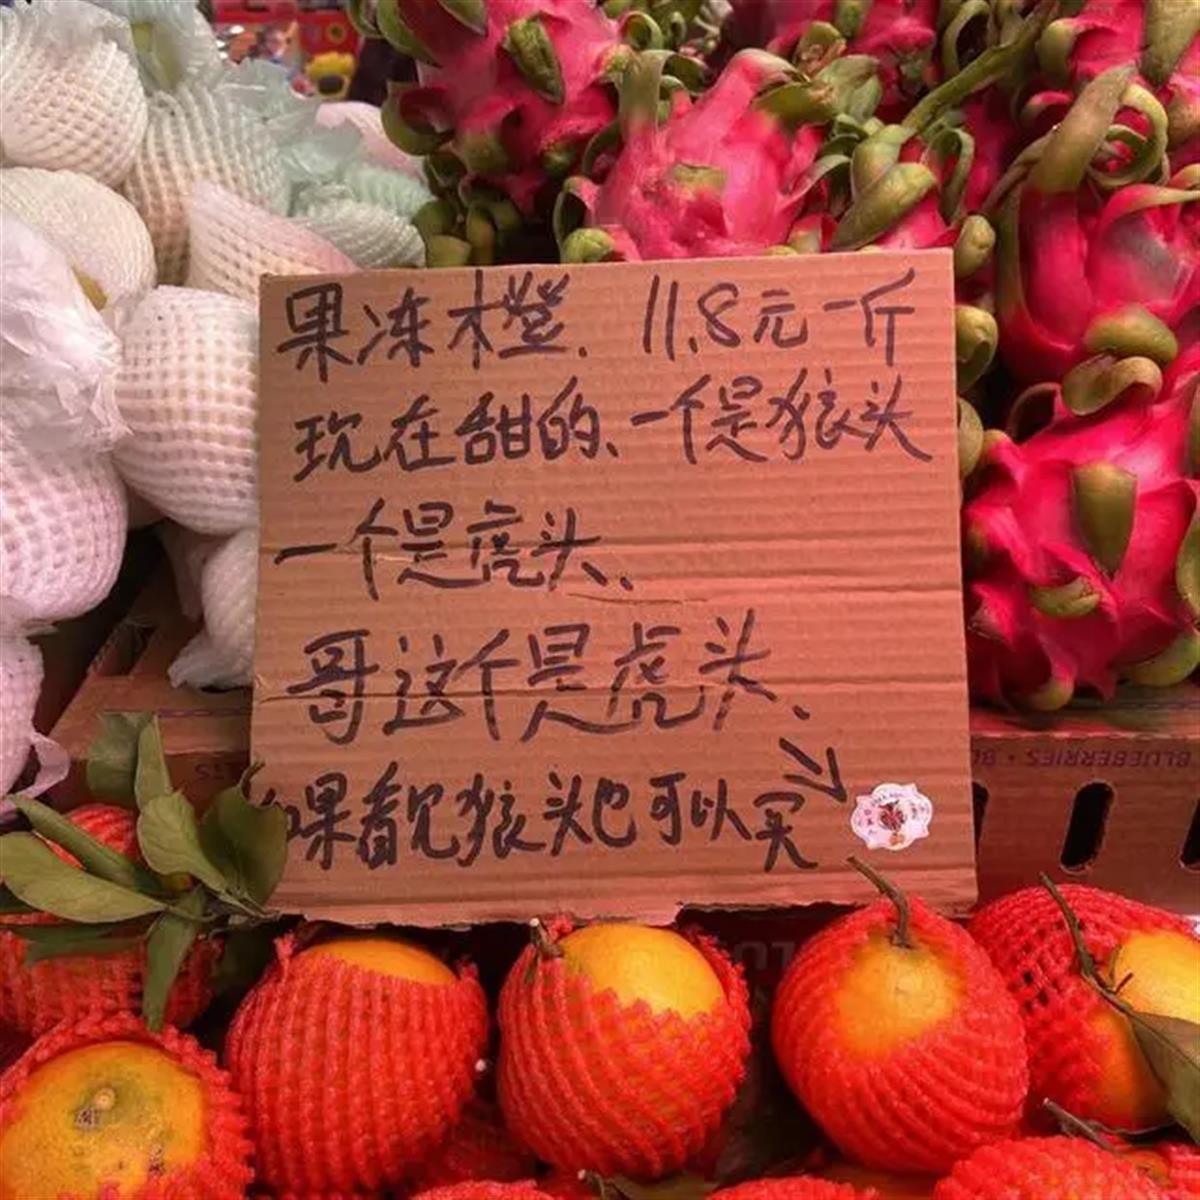 果冻橙、11.8元一斤
现在甜的、一个是狼头
一个是虎头、
哥这个是虎头、
如果看见狼头也可以买
BLUEBERRIES